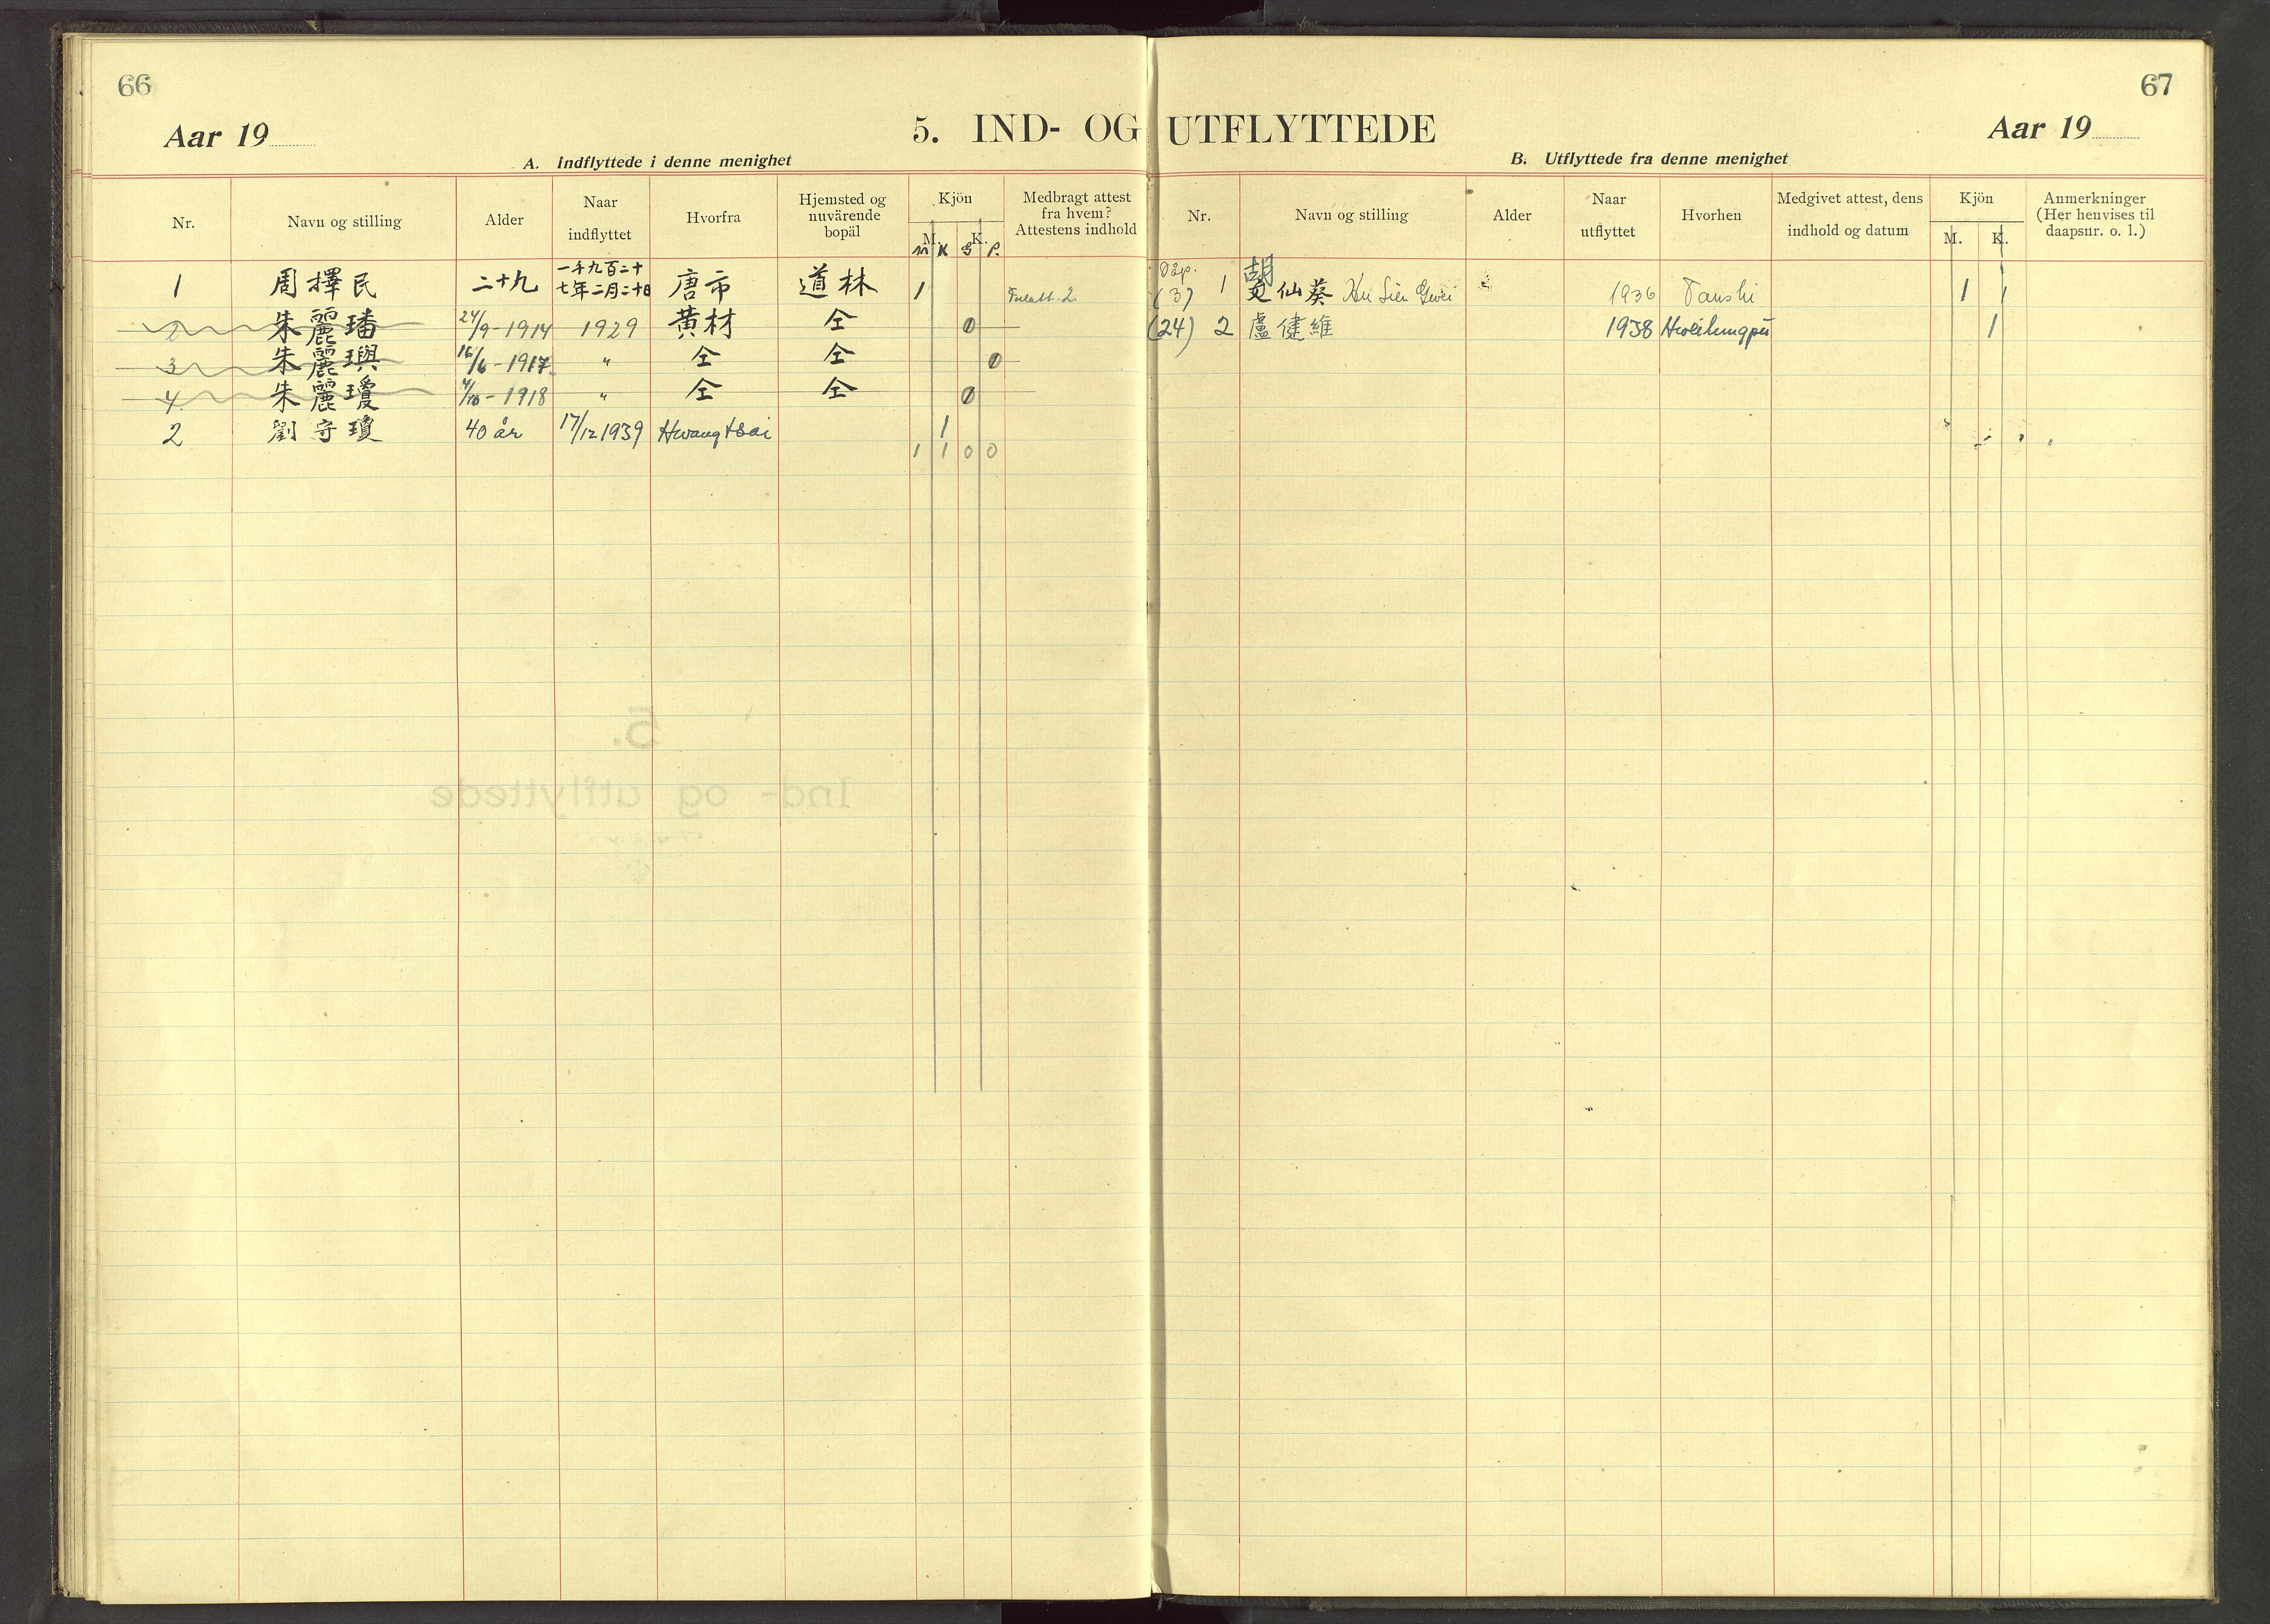 66
Aar 19
5. IND- OG
A. Indflyttede i denne menighet
Nr. Navn og stilling Alder Naar indflyttet Hvorfra Hjemsted og nuvärende bopäl Kjön M. K. Medbragt attest fra hvem? Attestens indhold
M K G P.
1 周擇民 二十九 一千九百二十七年二月二十日 唐市 道林 1
2 朱麗璠 24/9-1914 1929 黄材 仝 0
3 朱麗璵 16/6-1917 " 仝 仝 0
4 朱麗瓊 -1918 " 仝 仝 0
2 劉守瓊 40 år 17/12 1939 Hwangtsai 1
1 1 0 0
67
UTFLYTTEDE
Aar 19
B. Utflyttede fra denne menighet
Nr. Navn og stilling Alder Naar utflyttet Hvorhen Medgivet attest, dens indhold og datum Kjön M. K. Anmerkninger (Her henvises til daapsnr. o. l.)
Dåp.
(3) 1 胡仙葵 Hu Sien Gwei 1936 Tanshi 1
(24) 2 盧健維 1938 1
5.
Ind- og utflyttede